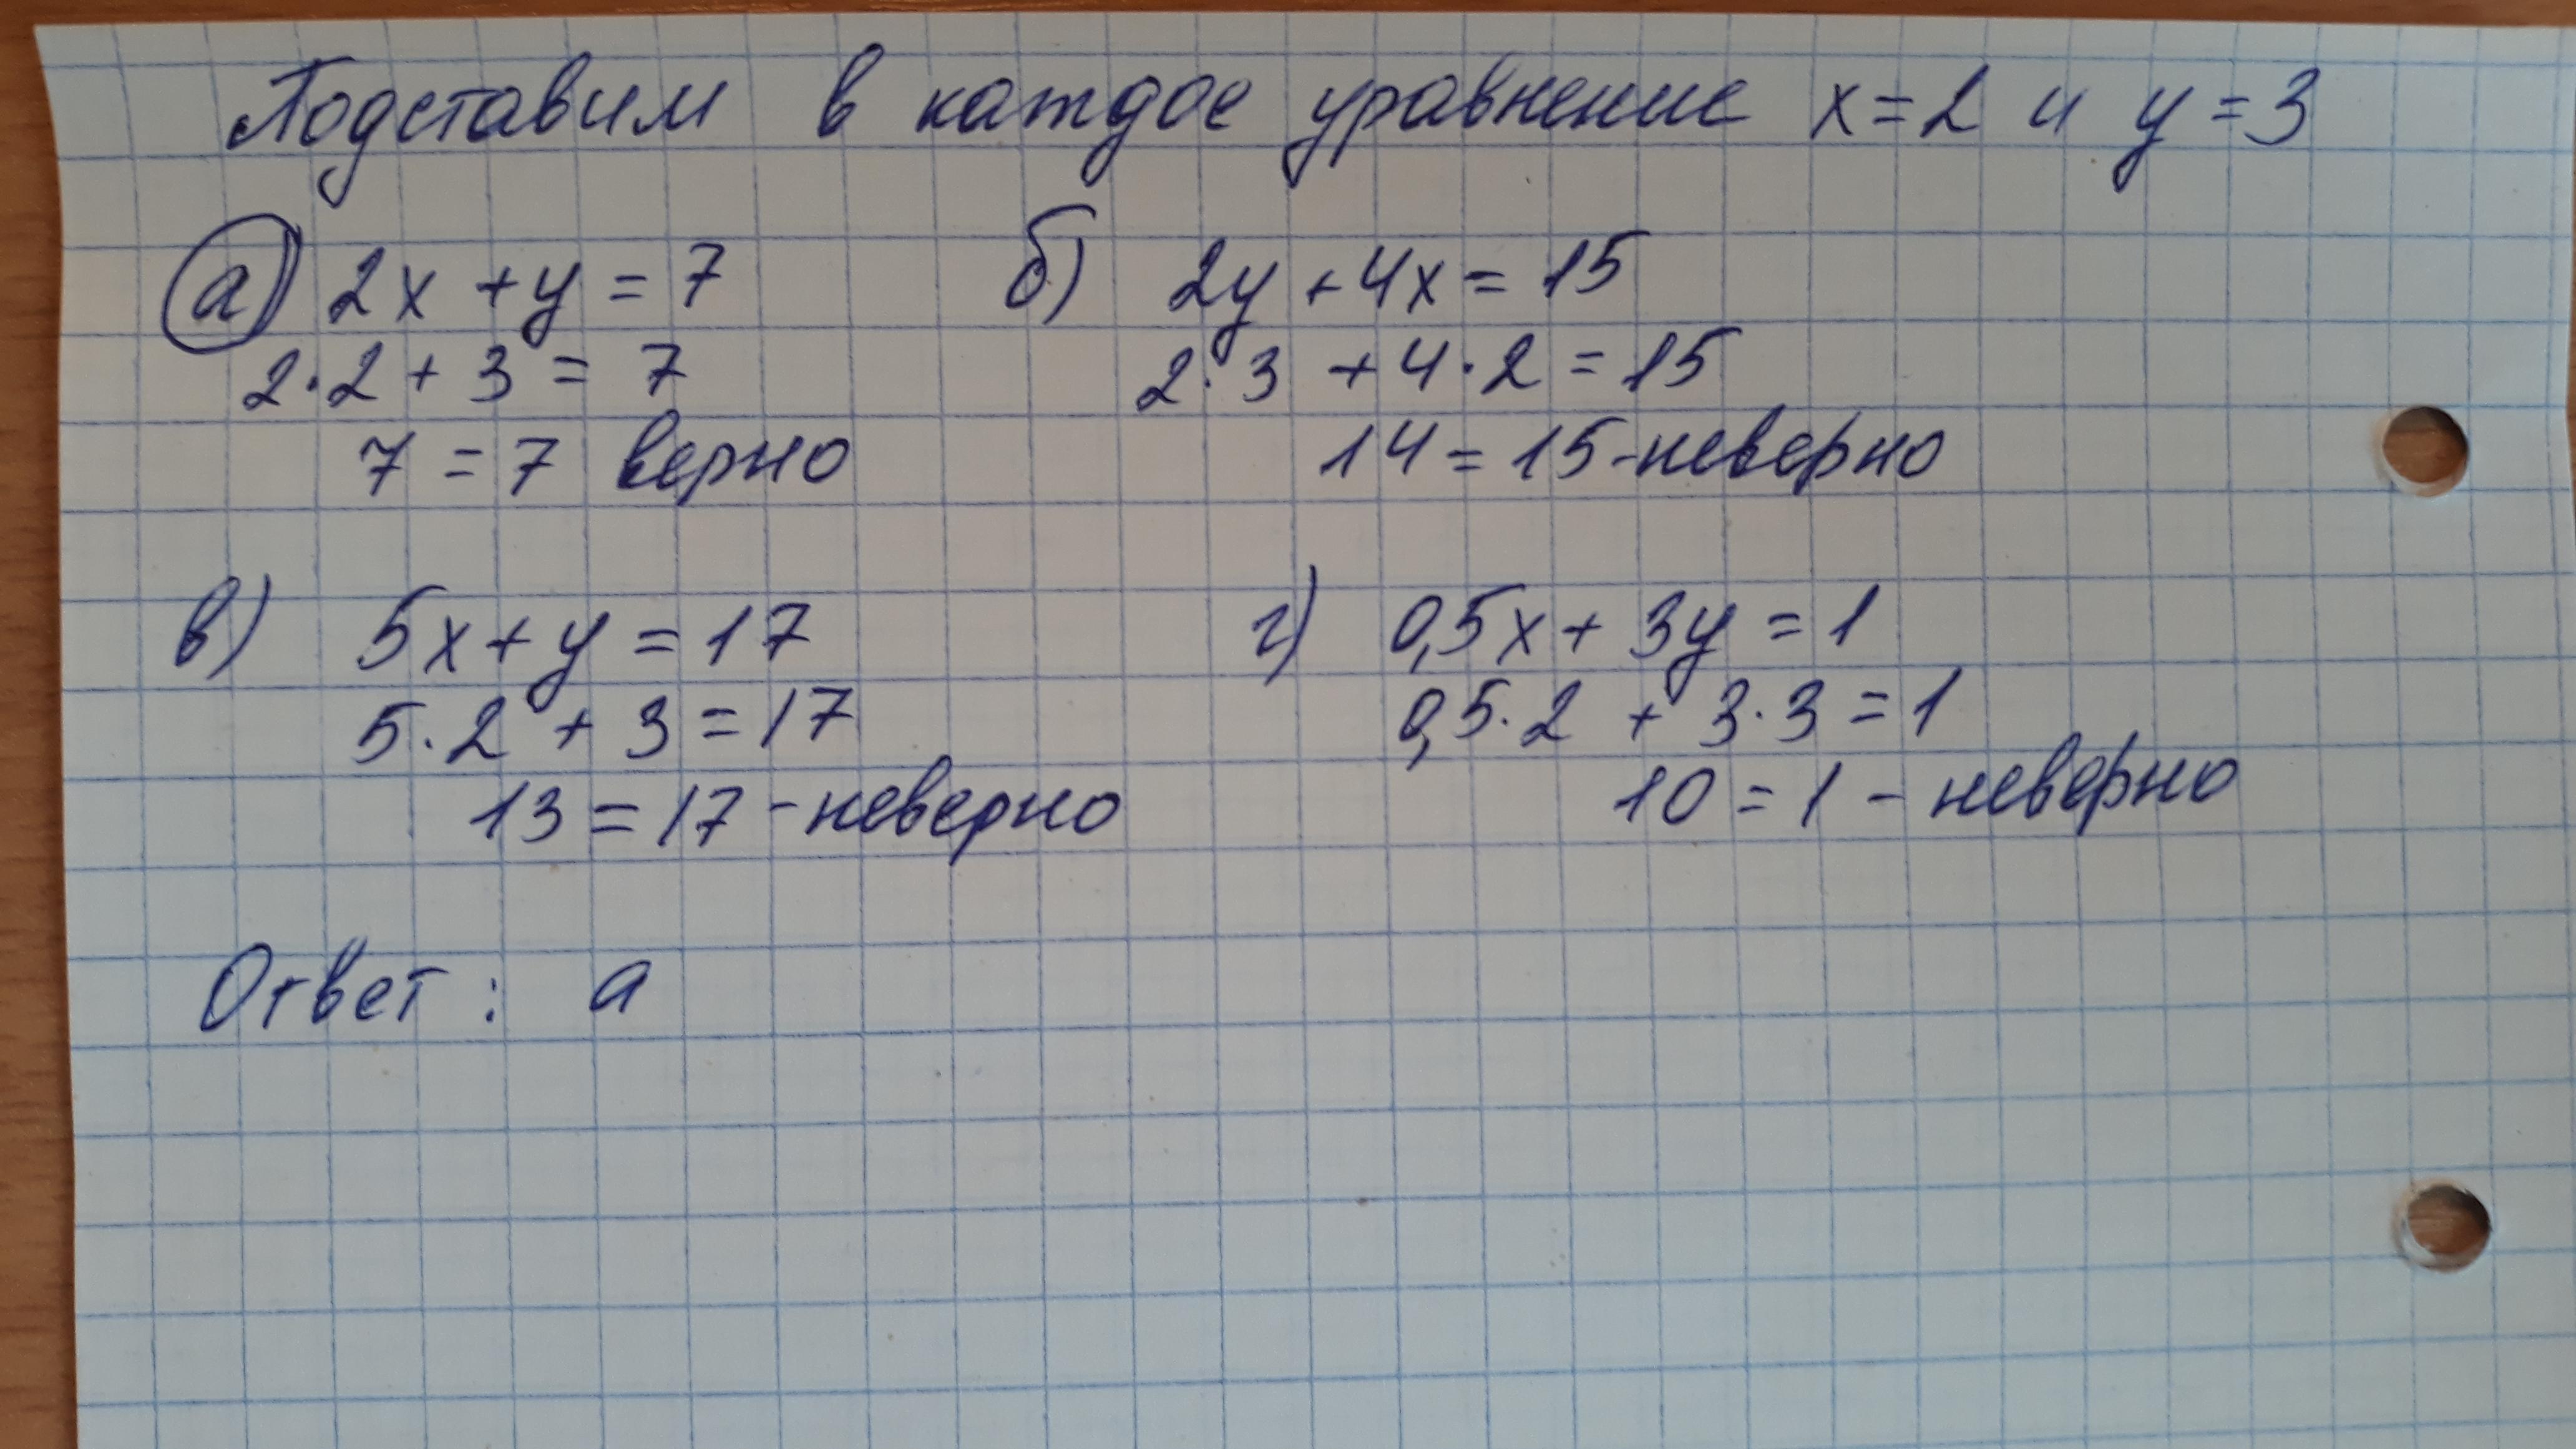 Подставим в каждое уравнение x=2 и y=3
а) 2x+y=7
2·2+3=7
7=7 верно
б) 2y+4x=15
2·3+4·2=15
14=15-неверно
в) 5x+y=17
5·2+3=17
13=17-неверно
г) 0,5x+3y=1
0,5·2+3·3=1
10=1-неверно
Ответ: а